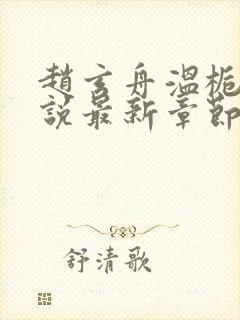 趙玄舟溫梔
說最新章節
舒清歌